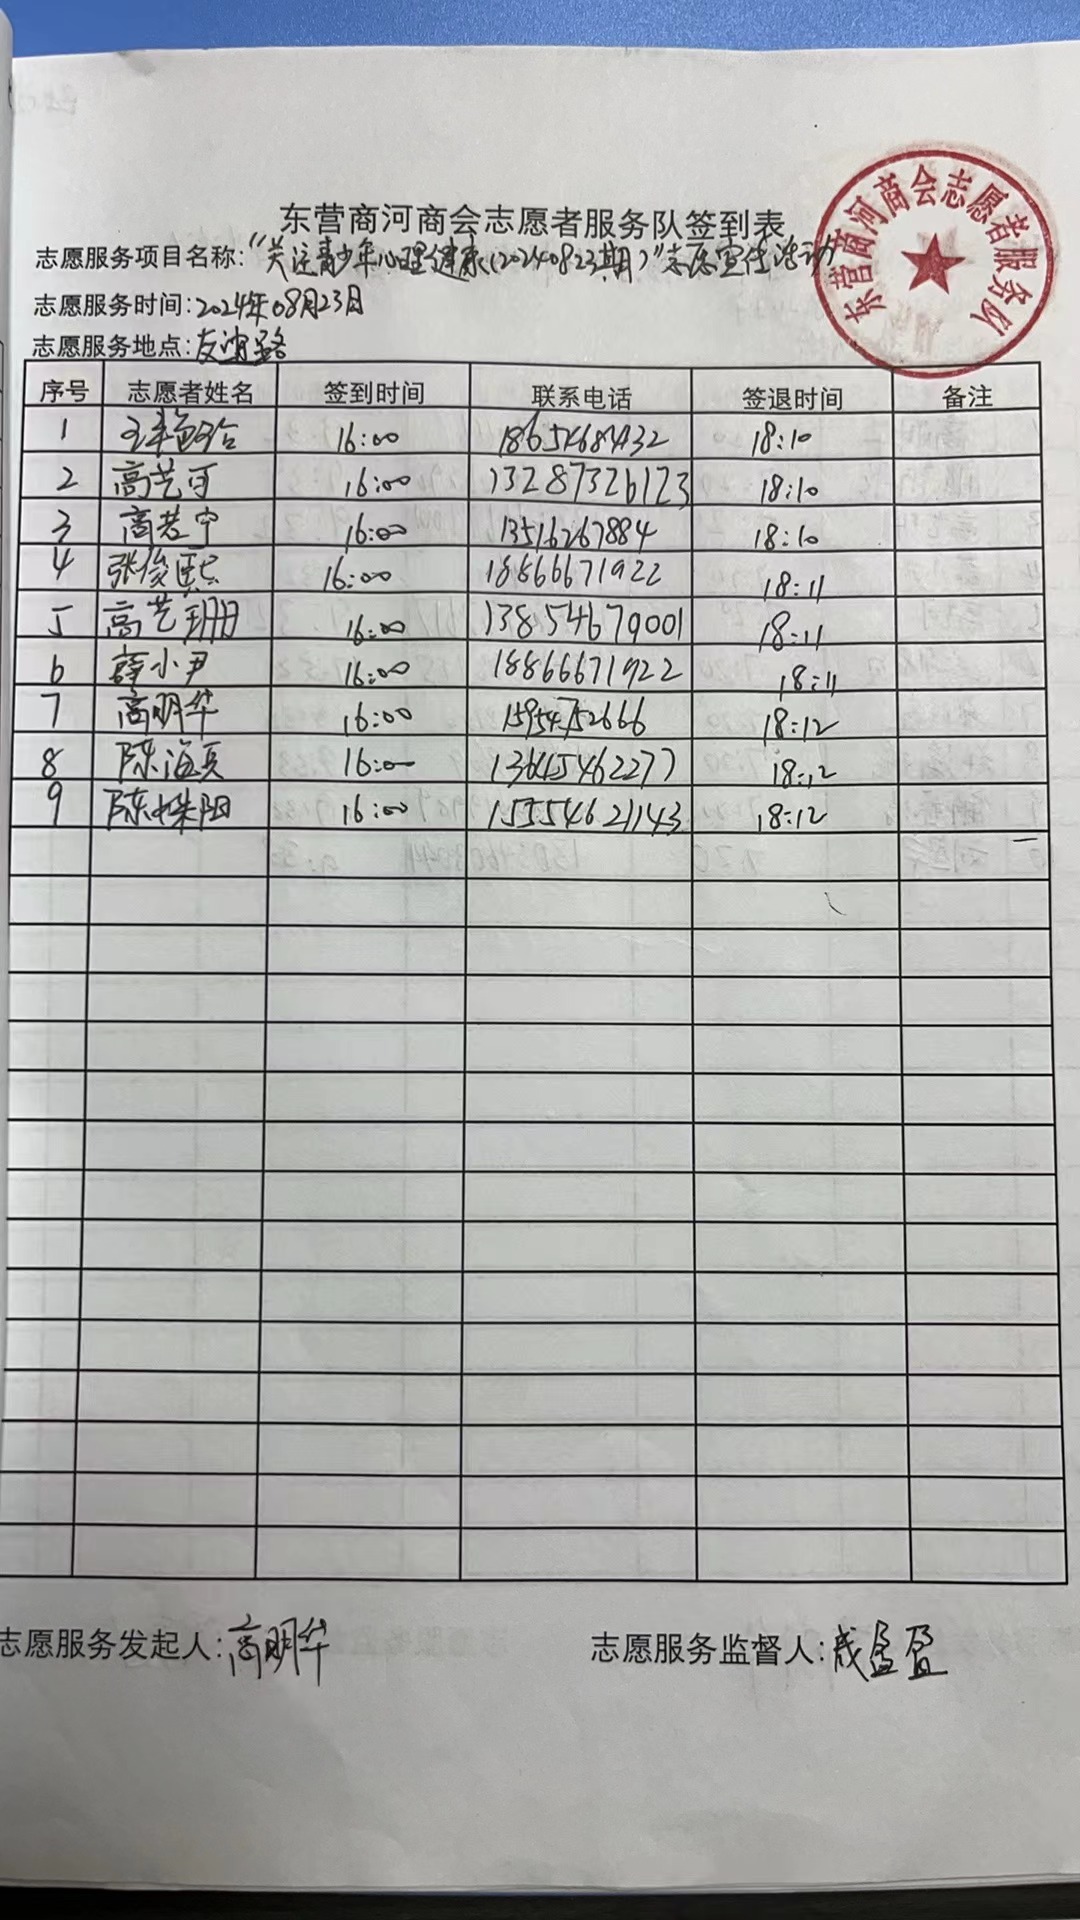 东营商河商会志愿者服务队签到表
东营商河商会志愿者服务队
志愿服务项目名称:“关注青少年心理健康(20240823期)”志愿宣传活动
志愿服务时间:2024年08月23日
志愿服务地点:友谊路
序号 志愿者姓名 签到时间 联系电话 签退时间 备注
1 16:00 18:10
2 高艺可 16:00 13287326123 18:10
3 高若宁 16:00 13516267884 18:10
4 张俊熙 16:00 18866671922 18:11
5 高艺珊 16:00 13854679001 18:11
6 薛小尹 16:00 18866671922 18:11
7 高明华 16:00 15954752666 18:12
8 陈海兵 16:00 13645462277 18:12
9 陈姝阳 16:00 15554621143 18:12
志愿服务发起人:高明华 志愿服务监督人:成盈盈